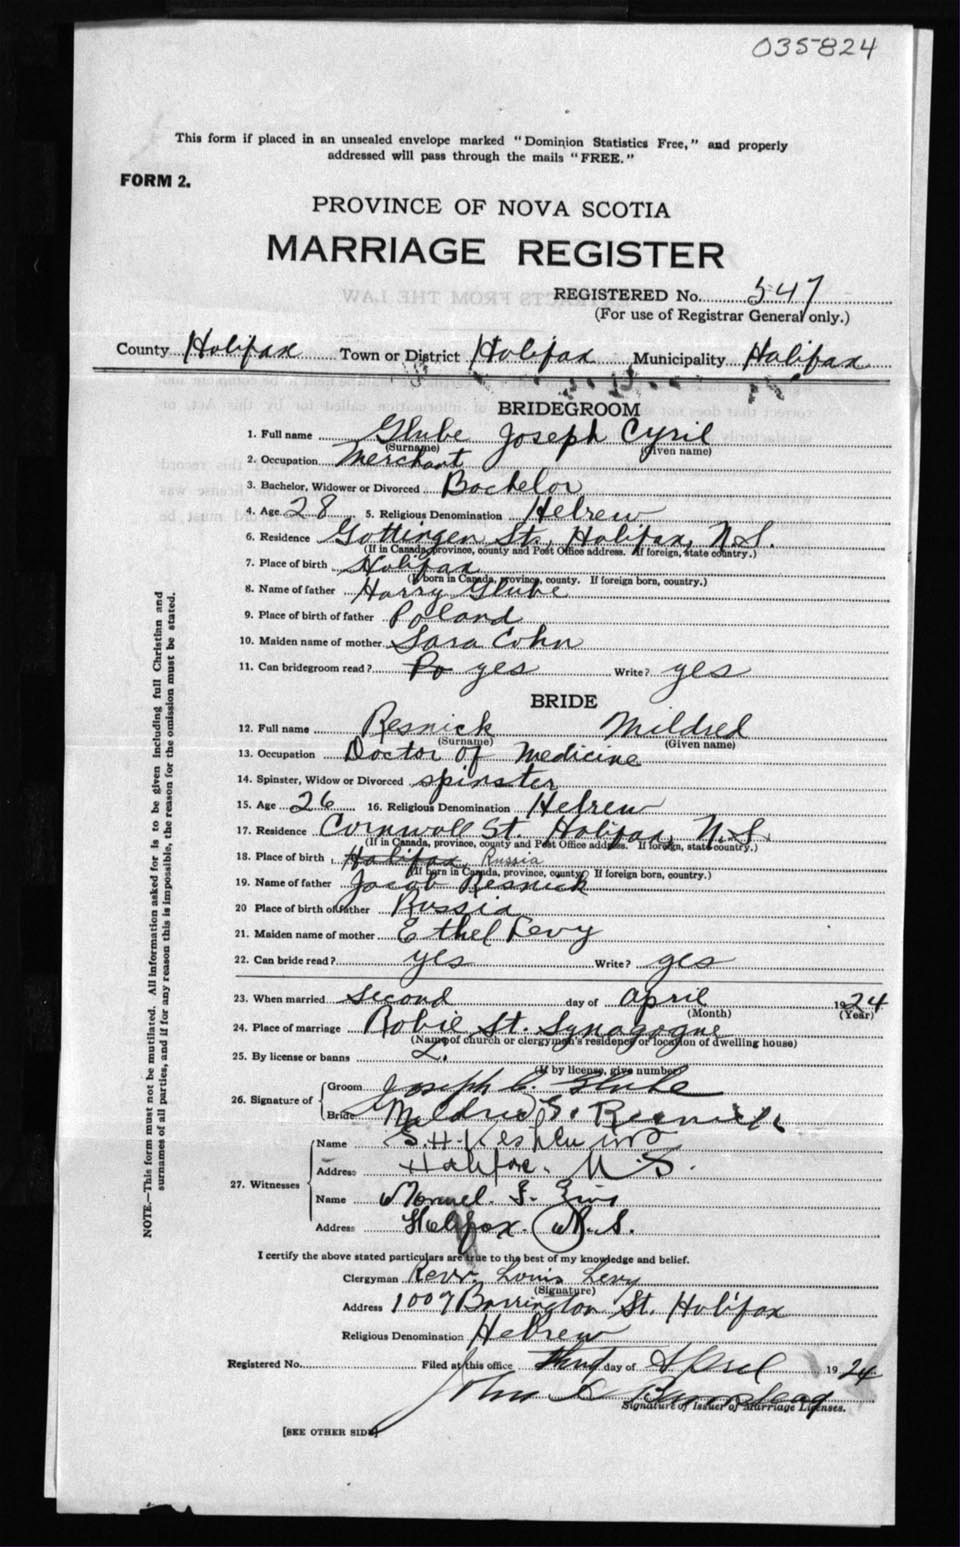 035824
This form if placed in an unsealed envelope marked "Dominion Statistics Free," and properly
addressed will pass through the mails "FREE."
FORM 2.
PROVINCE OF NOVA SCOTIA
MARRIAGE REGISTER
REGISTERED No. 547
(For use of Registrar General only.)
County Halifax Town or District Halifax Municipality Halifax
BRIDEGROOM
1. Full name Glube Joseph Cyril
(Surname) (Given name)
2. Occupation Merchant
3. Bachelor, Widower or Divorced Bachelor
4. Age 28 5. Religious Denomination Hebrew
6. Residence Gottingen St., Halifax, N.S.
(If in Canada, province, county and Post Office address. If foreign, state country.)
7. Place of birth Halifax
(If born in Canada, province, county. If foreign born, country.)
8. Name of father Harry Glube
9. Place of birth of father Poland
10. Maiden name of mother Sara Cohn
11. Can bridegroom read? Po yes Write? yes
BRIDE
12. Full name Resnick Mildred
(Surname) (Given name)
13. Occupation Doctor of Medicine
14. Spinster, Widow or Divorced spinster
15. Age 26 16. Religious Denomination Hebrew
17. Residence Cornwall St. Halifax, N.S.
(If in Canada, province, county and Post Office address. If foreign, state country.)
18. Place of birth Halifax, Russia
(If born in Canada, province, county. If foreign born, country.)
19. Name of father Jacob Resnick
20 Place of birth of father Russia
21. Maiden name of mother Ethel Levy
22. Can bride read? yes Write? yes
23. When married second day of April 1924
(Month) (Year)
24. Place of marriage Robie St. Synagogue
(Name of church or clergymen's residence or location of dwelling house)
25. By license or banns L.
(If by license, give number)
26. Signature of Groom Joseph C. Glube
Bride Mildred S. Resnick
27. Witnesses
Name S. H. Keshen
Address Halifax. N.S.
Name
Address Halifax. N.S.
I certify the above stated particulars are true to the best of my knowledge and belief.
Clergyman Revr. Louis Levy
(Signature)
Address 1007 Barrington St. Halifax
Religious Denomination Hebrew
Registered No. Filed at this office third day of April 1924
John
Signature of Issuer of Marriage Licenses.
[SEE OTHER SIDE]
NOTE.—This form must not be mutilated. All information asked for is to be given including full Christian and
surnames of all parties, and if for any reason this is impossible, the reason for the omission must be stated.